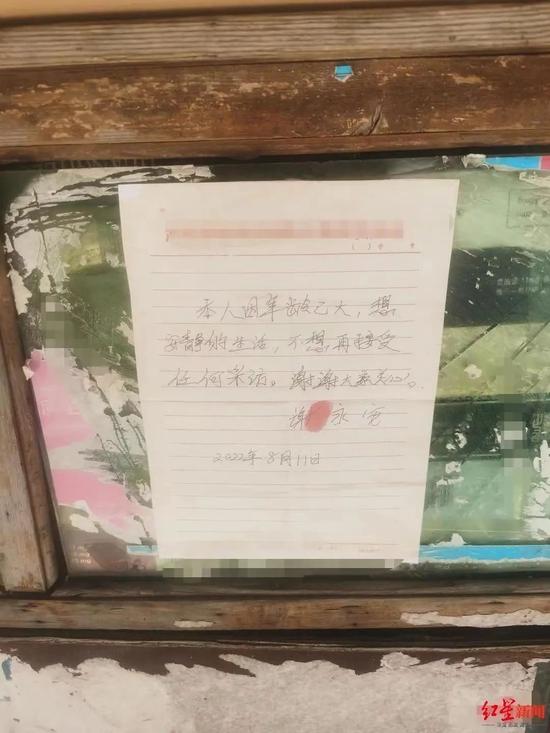 本人因年龄已大，想
安静的生活，不想再接受
任何采访。谢谢大家关心。
谢永宽
2022年8月11日
红星新闻